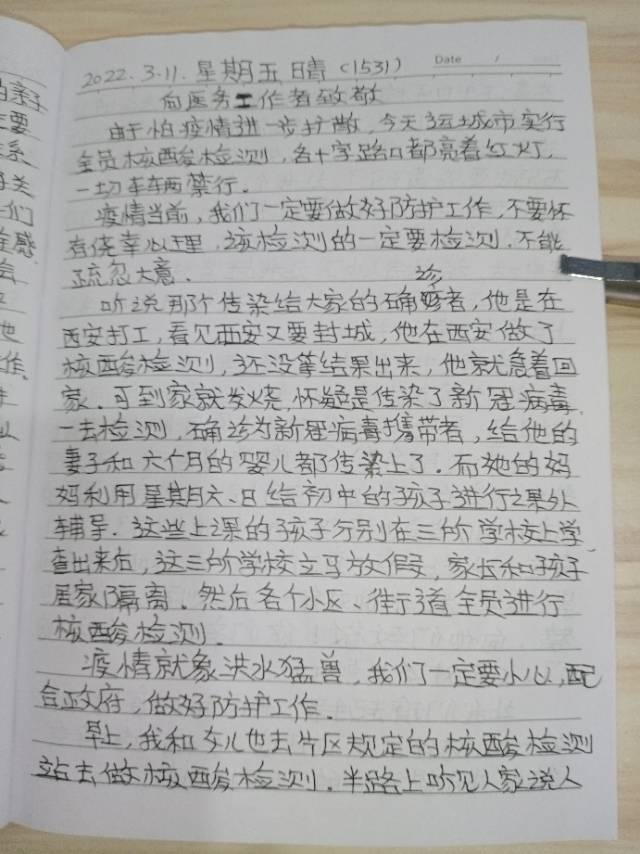 2022.3.11.星期五 晴(1531)
Date /
向医务工作者致敬
由于怕疫情进一步扩散,今天运城市实行
全员核酸检测,各十字路口都亮着红灯,
一切车辆禁行.
疫情当前,我们一定要做好防护工作,不要怀
有侥幸心理,该检测的一定要检测.不能
疏忽大意.
诊
听说那个传染给大家的确者,他是在
西安打工,看见西安又要封城,他在西安做了
核酸检测,还没等结果出来,他就急着回
家.可到家就发烧,怀疑是传染了新冠病毒,
一去检测,确诊为新冠病毒携带者,给他的
妻子和六个月的婴儿都传染上了.而她的妈
妈利用星期六、日给初中的孩子进行课外
辅导.这些上课的孩子分别在三所学校上学,
查出来后,这三所学校立马放假,家长和孩子
居家隔离.然后各个小区、街道全员进行
核酸检测.
疫情就象洪水猛兽,我们一定要小心,配
合政府,做好防护工作.
早上,我和女儿也去片区规定的核酸检测
站去做核酸检测.半路上听见人家说人
要
系
关
们
感
会
他
作.